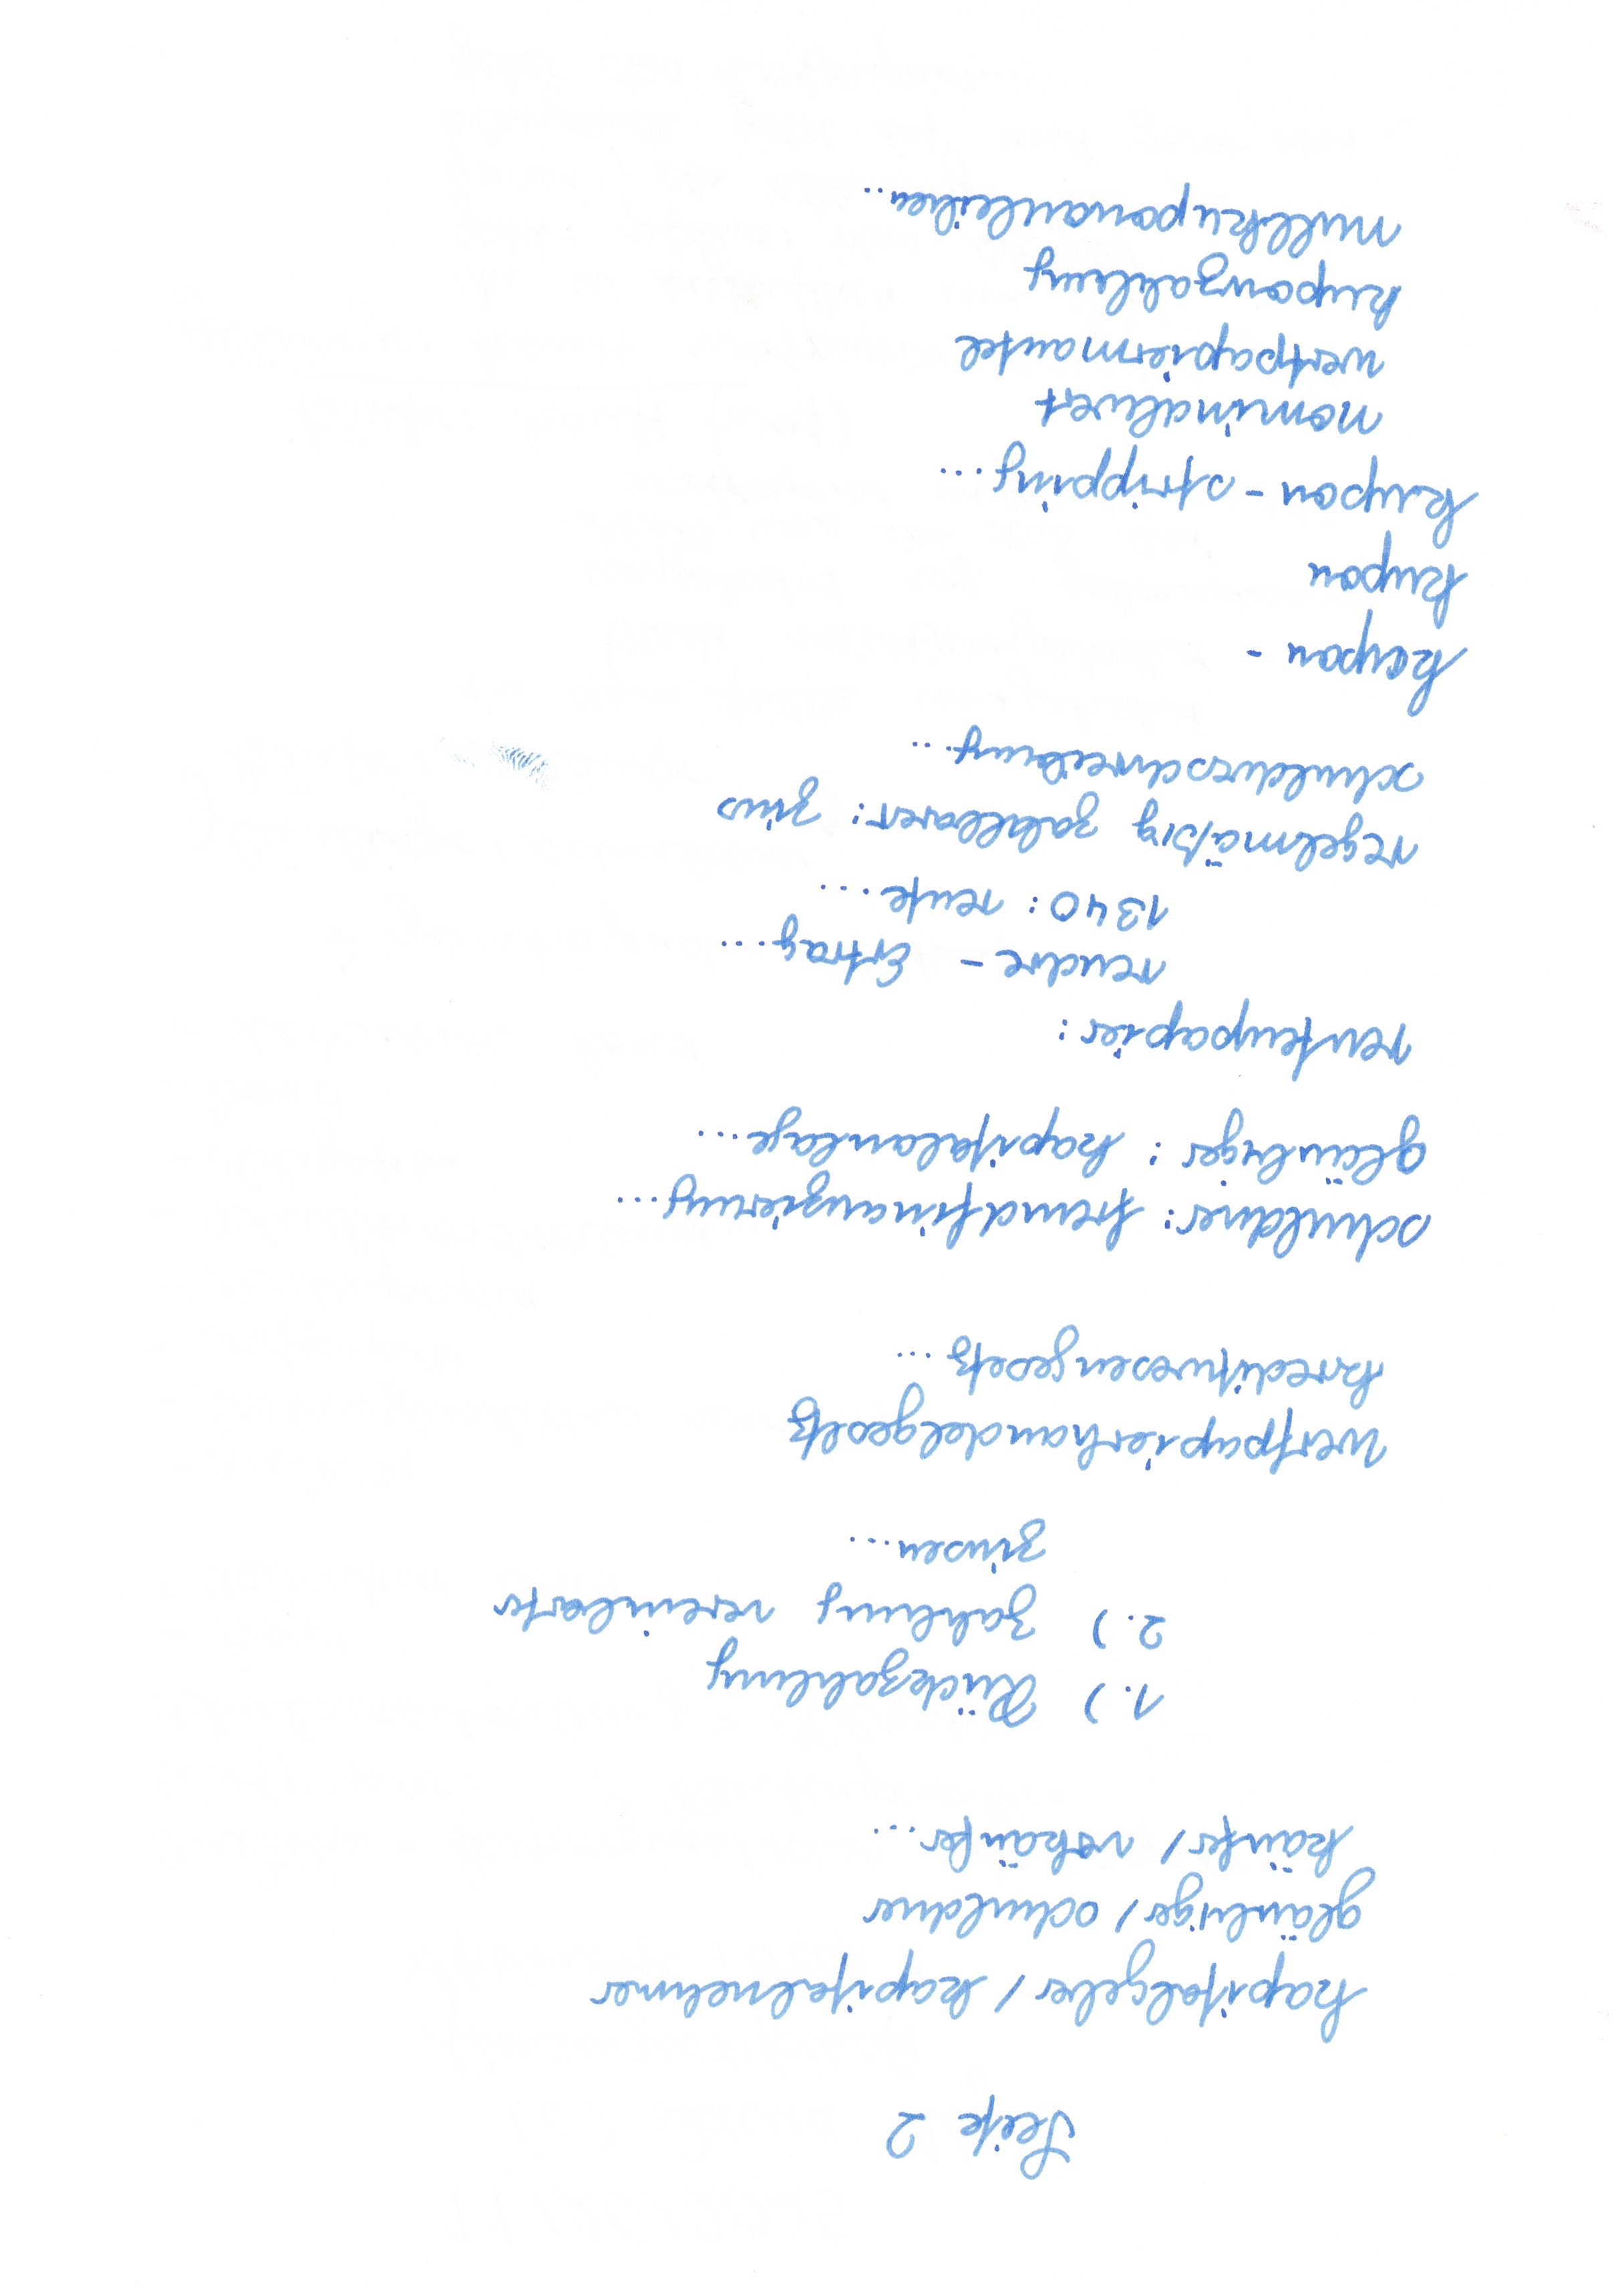 Seite 2
kapitalgeber / kapitalnehmer
gläubiger / schuldner
käufer / vekäufer...
1.) Rückzahlung
2.) Zahlung vereinbarter
zinsen...
Wertpapierhandelgesetz
kreditwesengesetz...
schuldner: fremdfinanzierung...
gläubiger: kapitalanlage...
rentenpapier:
rendre - Ertrag...
1340: rente...
regelmäßig zahlbarer: zins
schuldverschreibung...
kupon -
kupon
kupon - stripping...
nominalwert
wertpapiermantel
kuponzahlung
nullkuponanleihen...